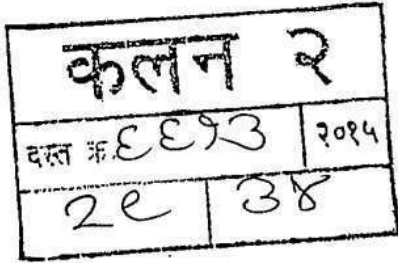 कलन २
दस्त क्र. ६६१३ २०१५
२९ ३४